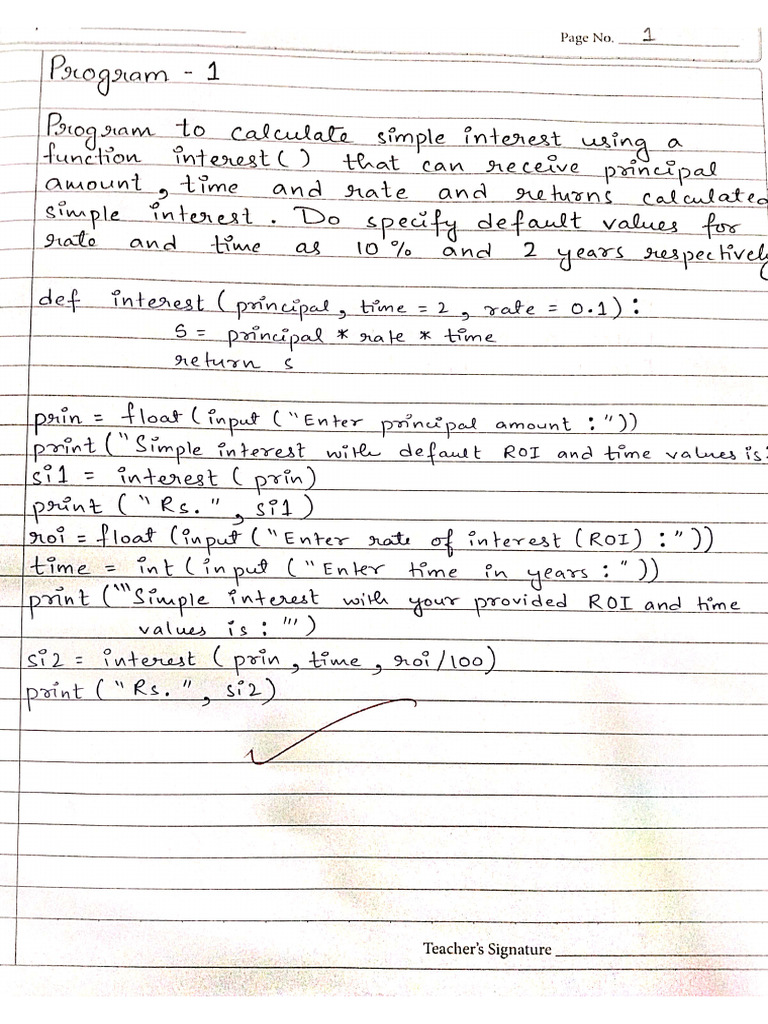 Page No. 1
Program - 1
Program to calculate simple interest using a
function interest() that can receive principal
amount, time and rate and returns calculated
simple interest. Do specify default values for
rate and time as 10% and 2 years respectively
def interest(principal, time = 2, rate = 0.1):
S = principal * rate * time
return s
prin = float(input("Enter principal amount :"))
print("Simple interest with default ROI and time values is:
si1 = interest(prin)
print("Rs.", si1)
roi = float(input("Enter rate of interest (ROI) :"))
time = int(input("Enter time in years :"))
print('''Simple interest with your provided ROI and time
values is : ''')
si2 = interest(prin, time, roi/100)
print("Rs.", si2)
Teacher's Signature